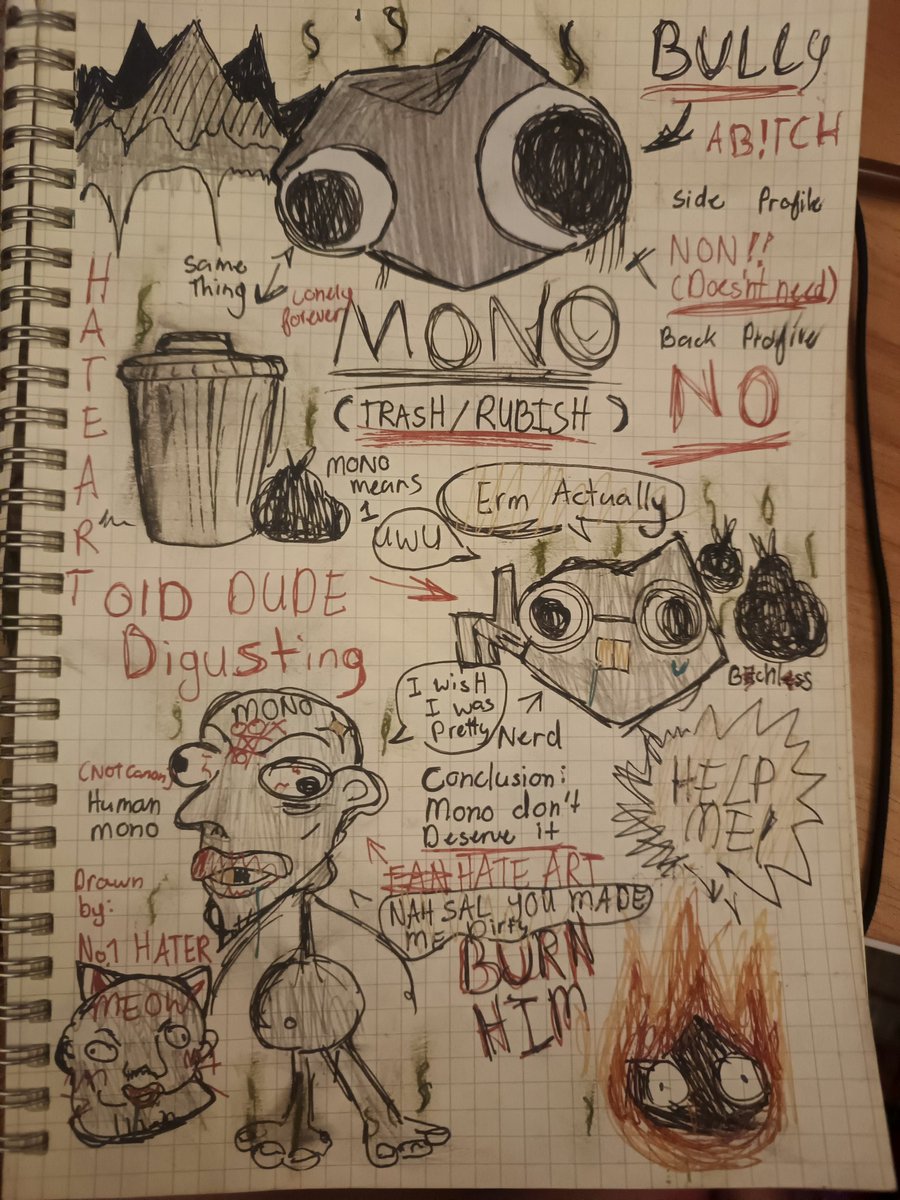 BULLY
A B!TCH
side Profile
NON!!
(Does'nt need)
Back Profile
NO
same
thing
Lonely
forever
MONO
(TRASH/RUBISH)
HATE ART
MONO
means
1
UWU
Erm Actually
OlD DUDE
Digusting
I wisH
I was
Pretty
Nerd
B*tchless
MONO
(NOT Canon)
Human
mono
Conclusion:
Mono don't
Deserve it
FAN HATE ART
NAH SAL YOU MADE
ME Dirty
HELP
ME!
Drawn
by:
No.1 HATER
MEOW
BURN
HIM